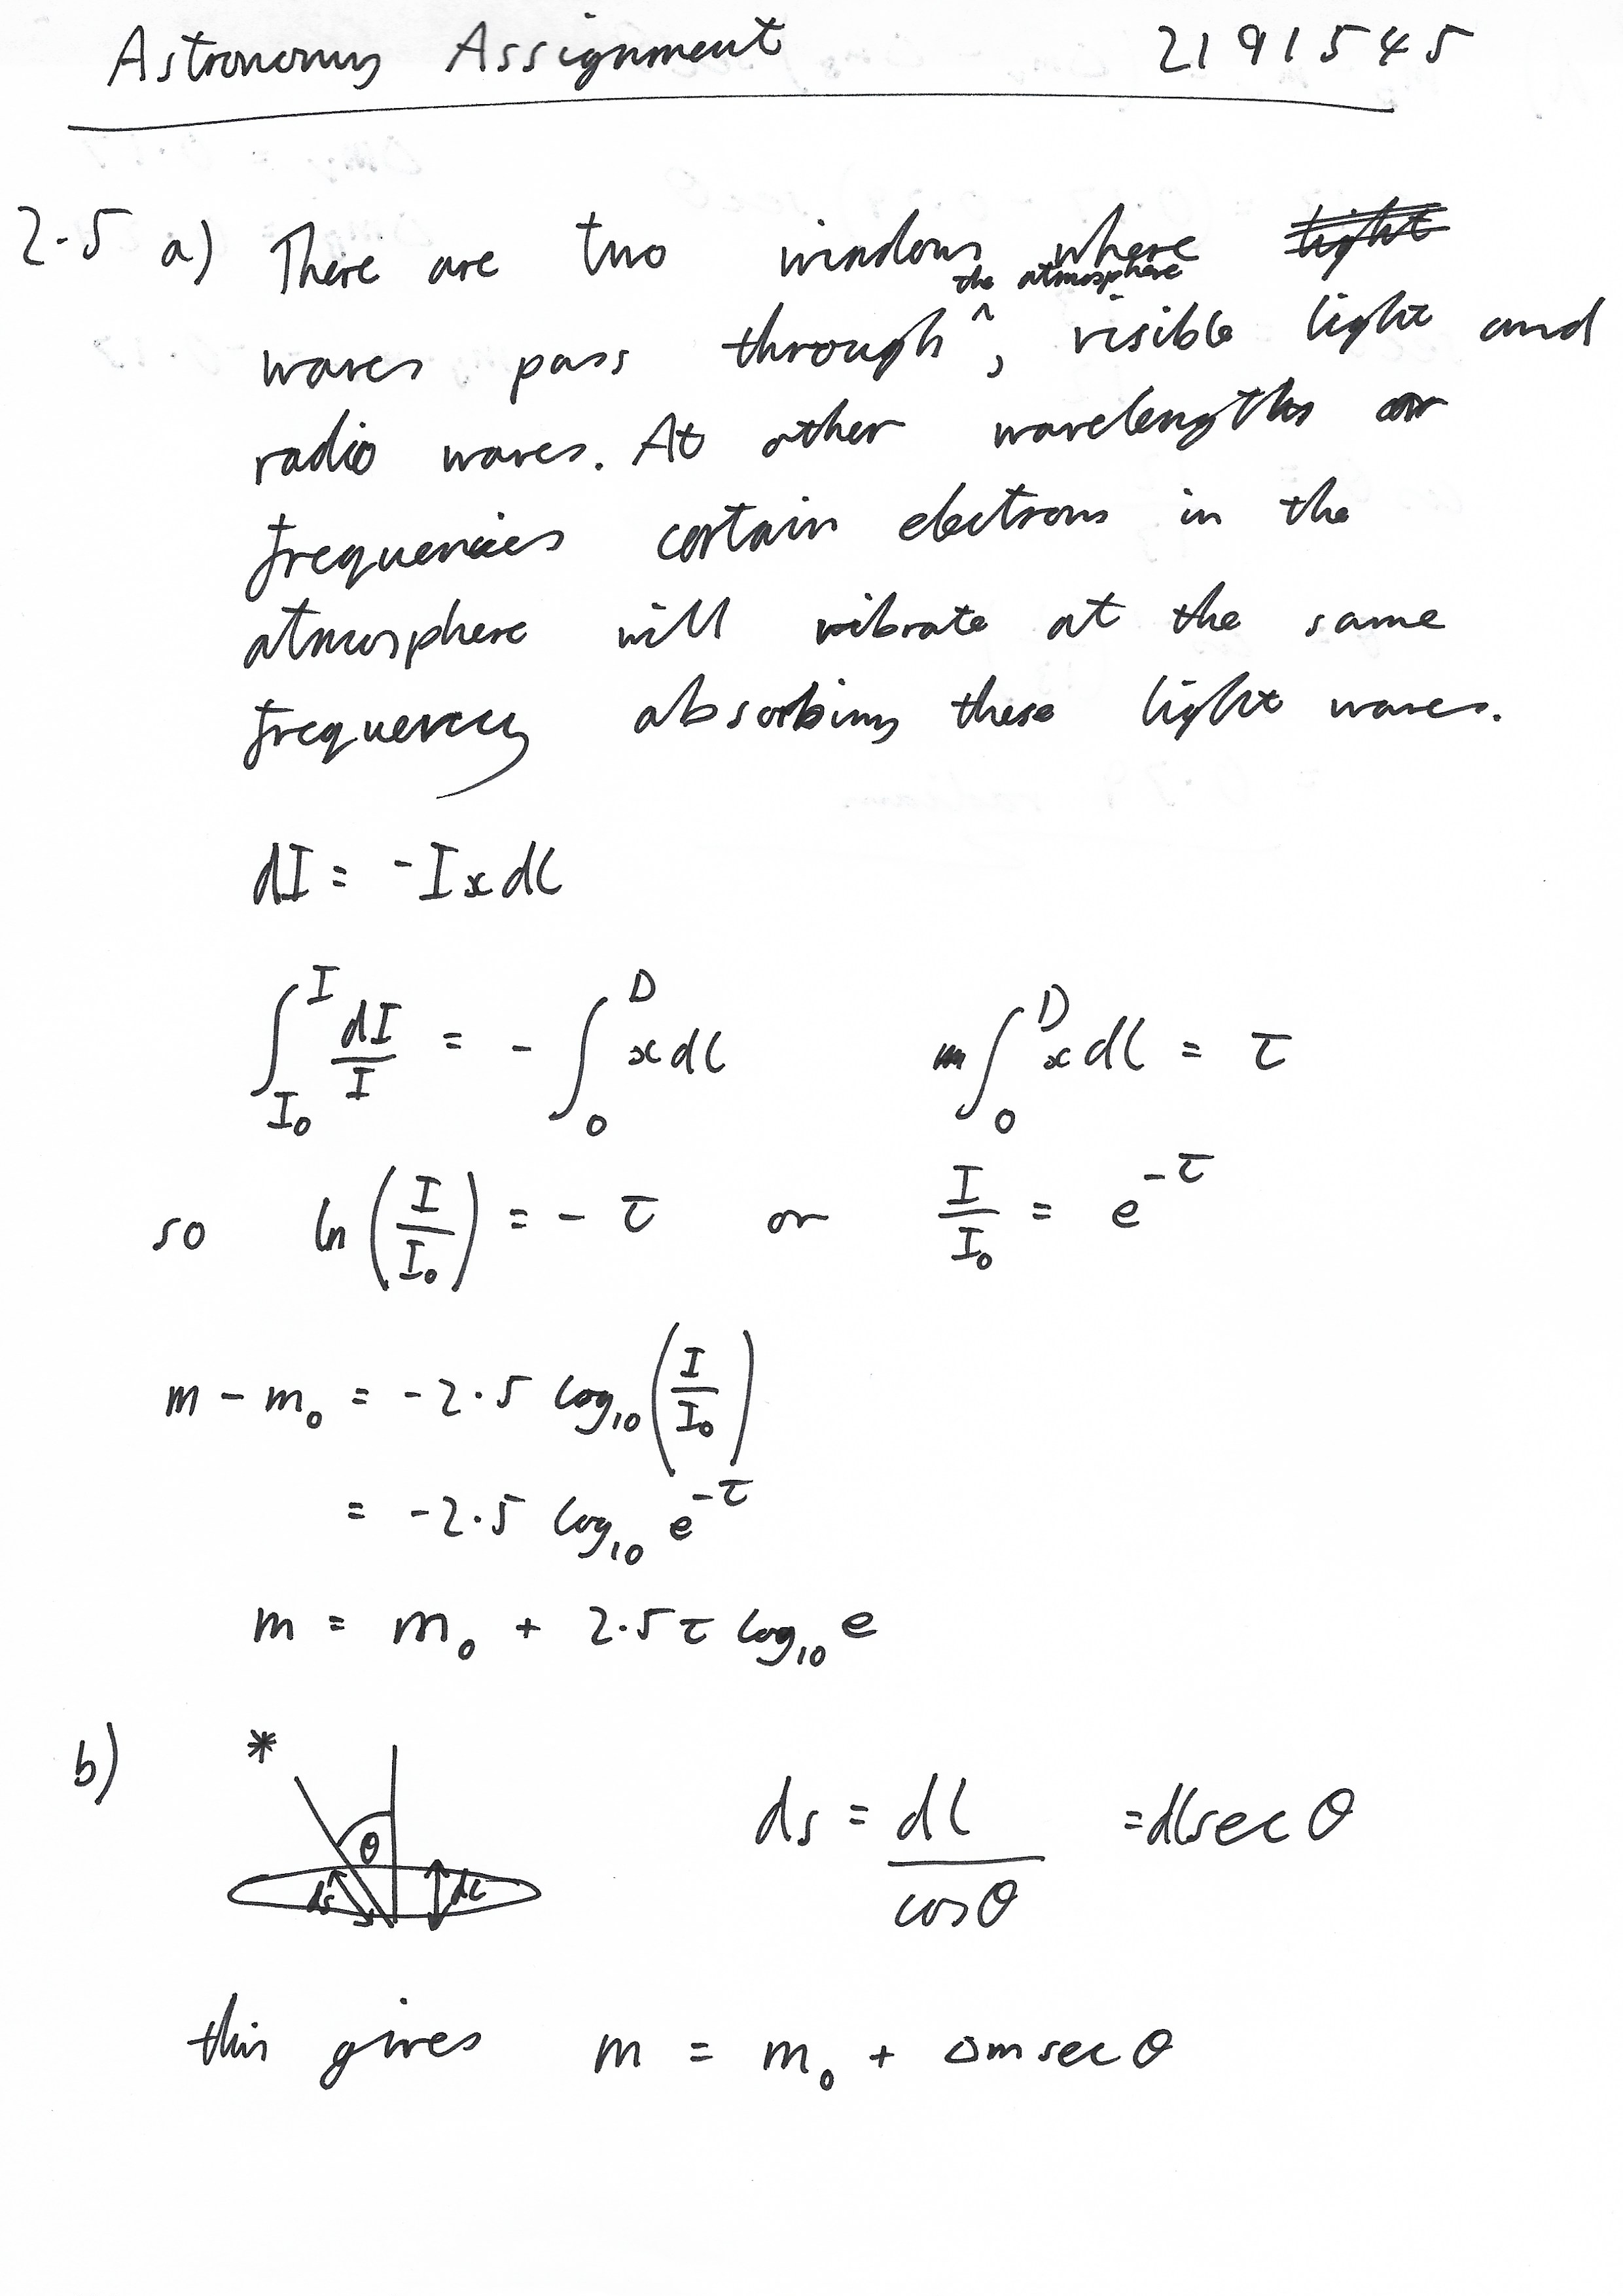 Astronomy Assignment 2191545
2.5 a) There are two windows where light
the atmosphere
waves pass through ^, visible light and
radio waves. At other wavelengths or
frequencies certain electrons in the
atmosphere will vibrate at the same
frequency absorbing these light waves.
dI = -I x dl
∫_{I₀}^{I} dI/I = - ∫_0^D x dl    ∫_0^D x dl = τ
so ln(I/I₀) = - τ or I/I₀ = e^{-τ}
m - m₀ = -2.5 log₁₀(I/I₀)
= -2.5 log₁₀ e^{-τ}
m = m₀ + 2.5 τ log₁₀ e
b) * θ ds dl    ds = dl/cosθ = dl sec θ
this gives m = m₀ + Δm sec θ